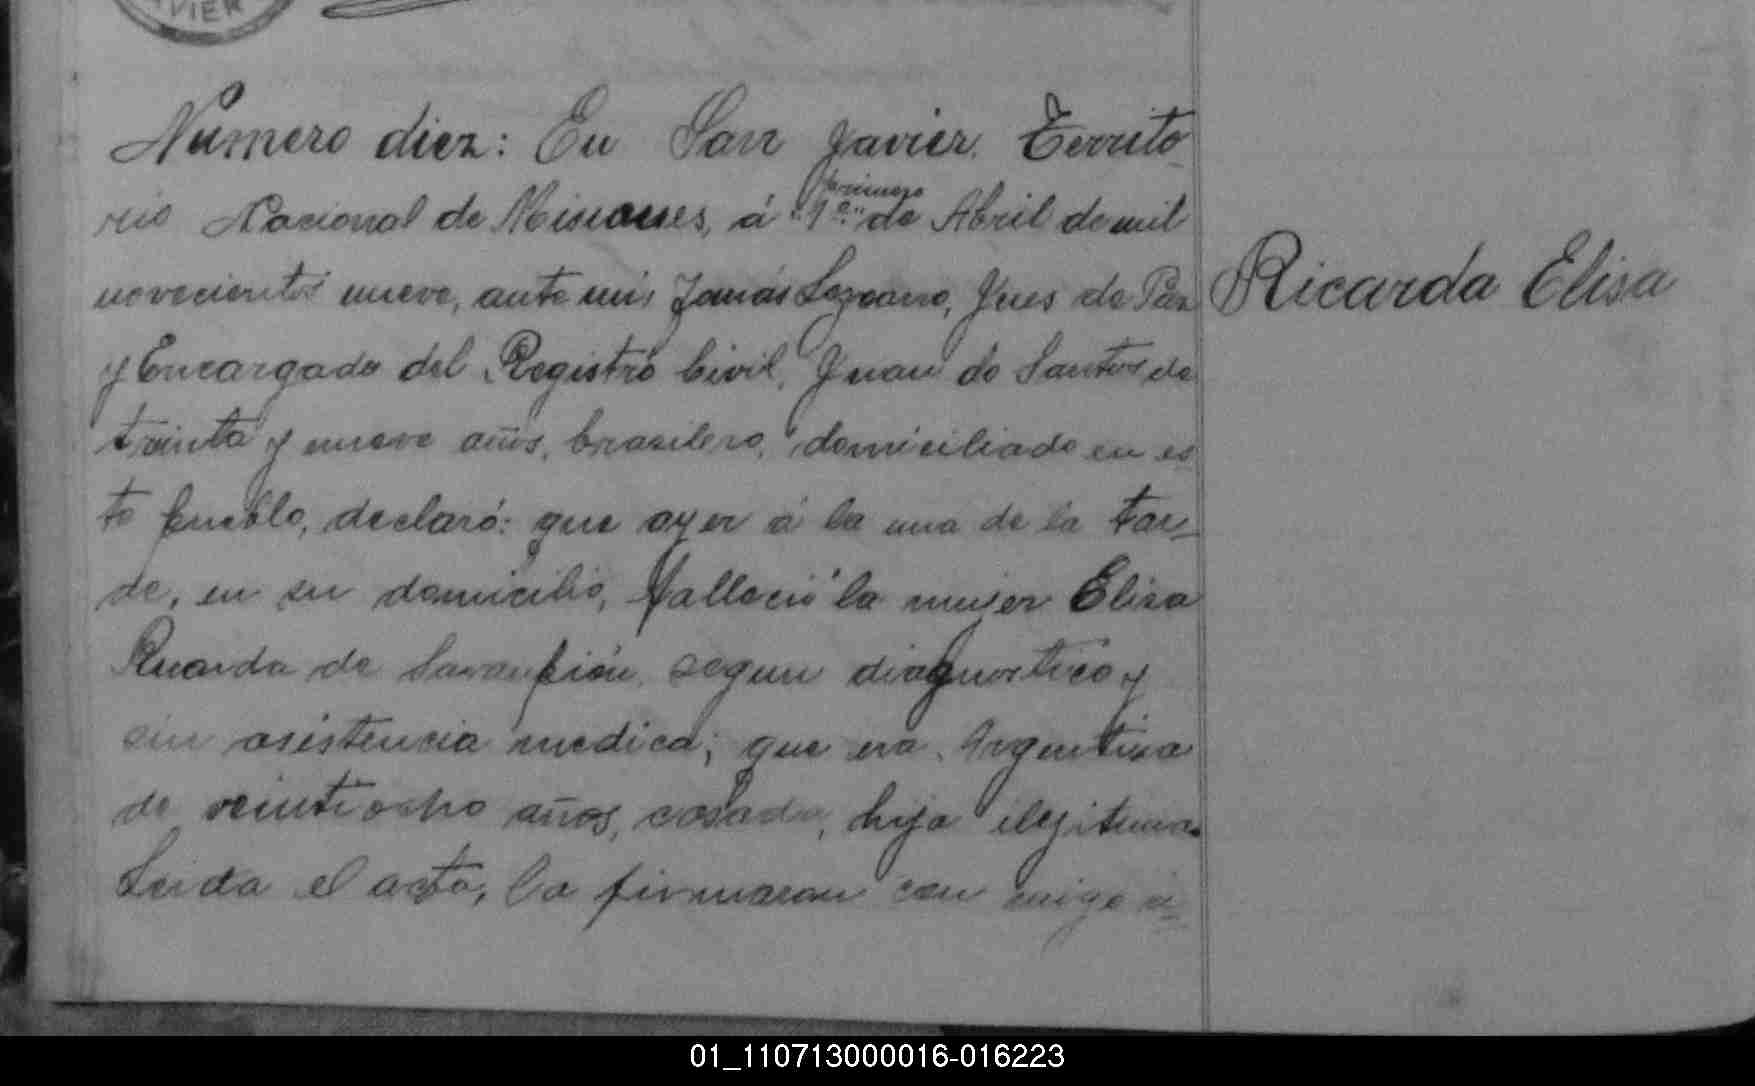 VIER
Numero diez: En San Javier. Territo
rio Nacional de Misiones, á "1º" de Abril de mil
primero
novecientos nueve, ante mi, Tomás Lezcano, Jues de Paz
y Encargado del Registro Civil, Juan do Santos de
trainta y nueve años, brasilero, domiciliado en es
te pueblo, declaró: que ayer á la una de la tar-
de, en su domicilio, falleció la mujer Elisa
Ricarda de Sarampión, segun diagnostico y
sin asistencia medica; que era Argentina
de veintiocho años, casada, hija ilegitima.
Leida el acta, la firmaron con migo á-
Ricarda Elisa
01_110713000016-016223